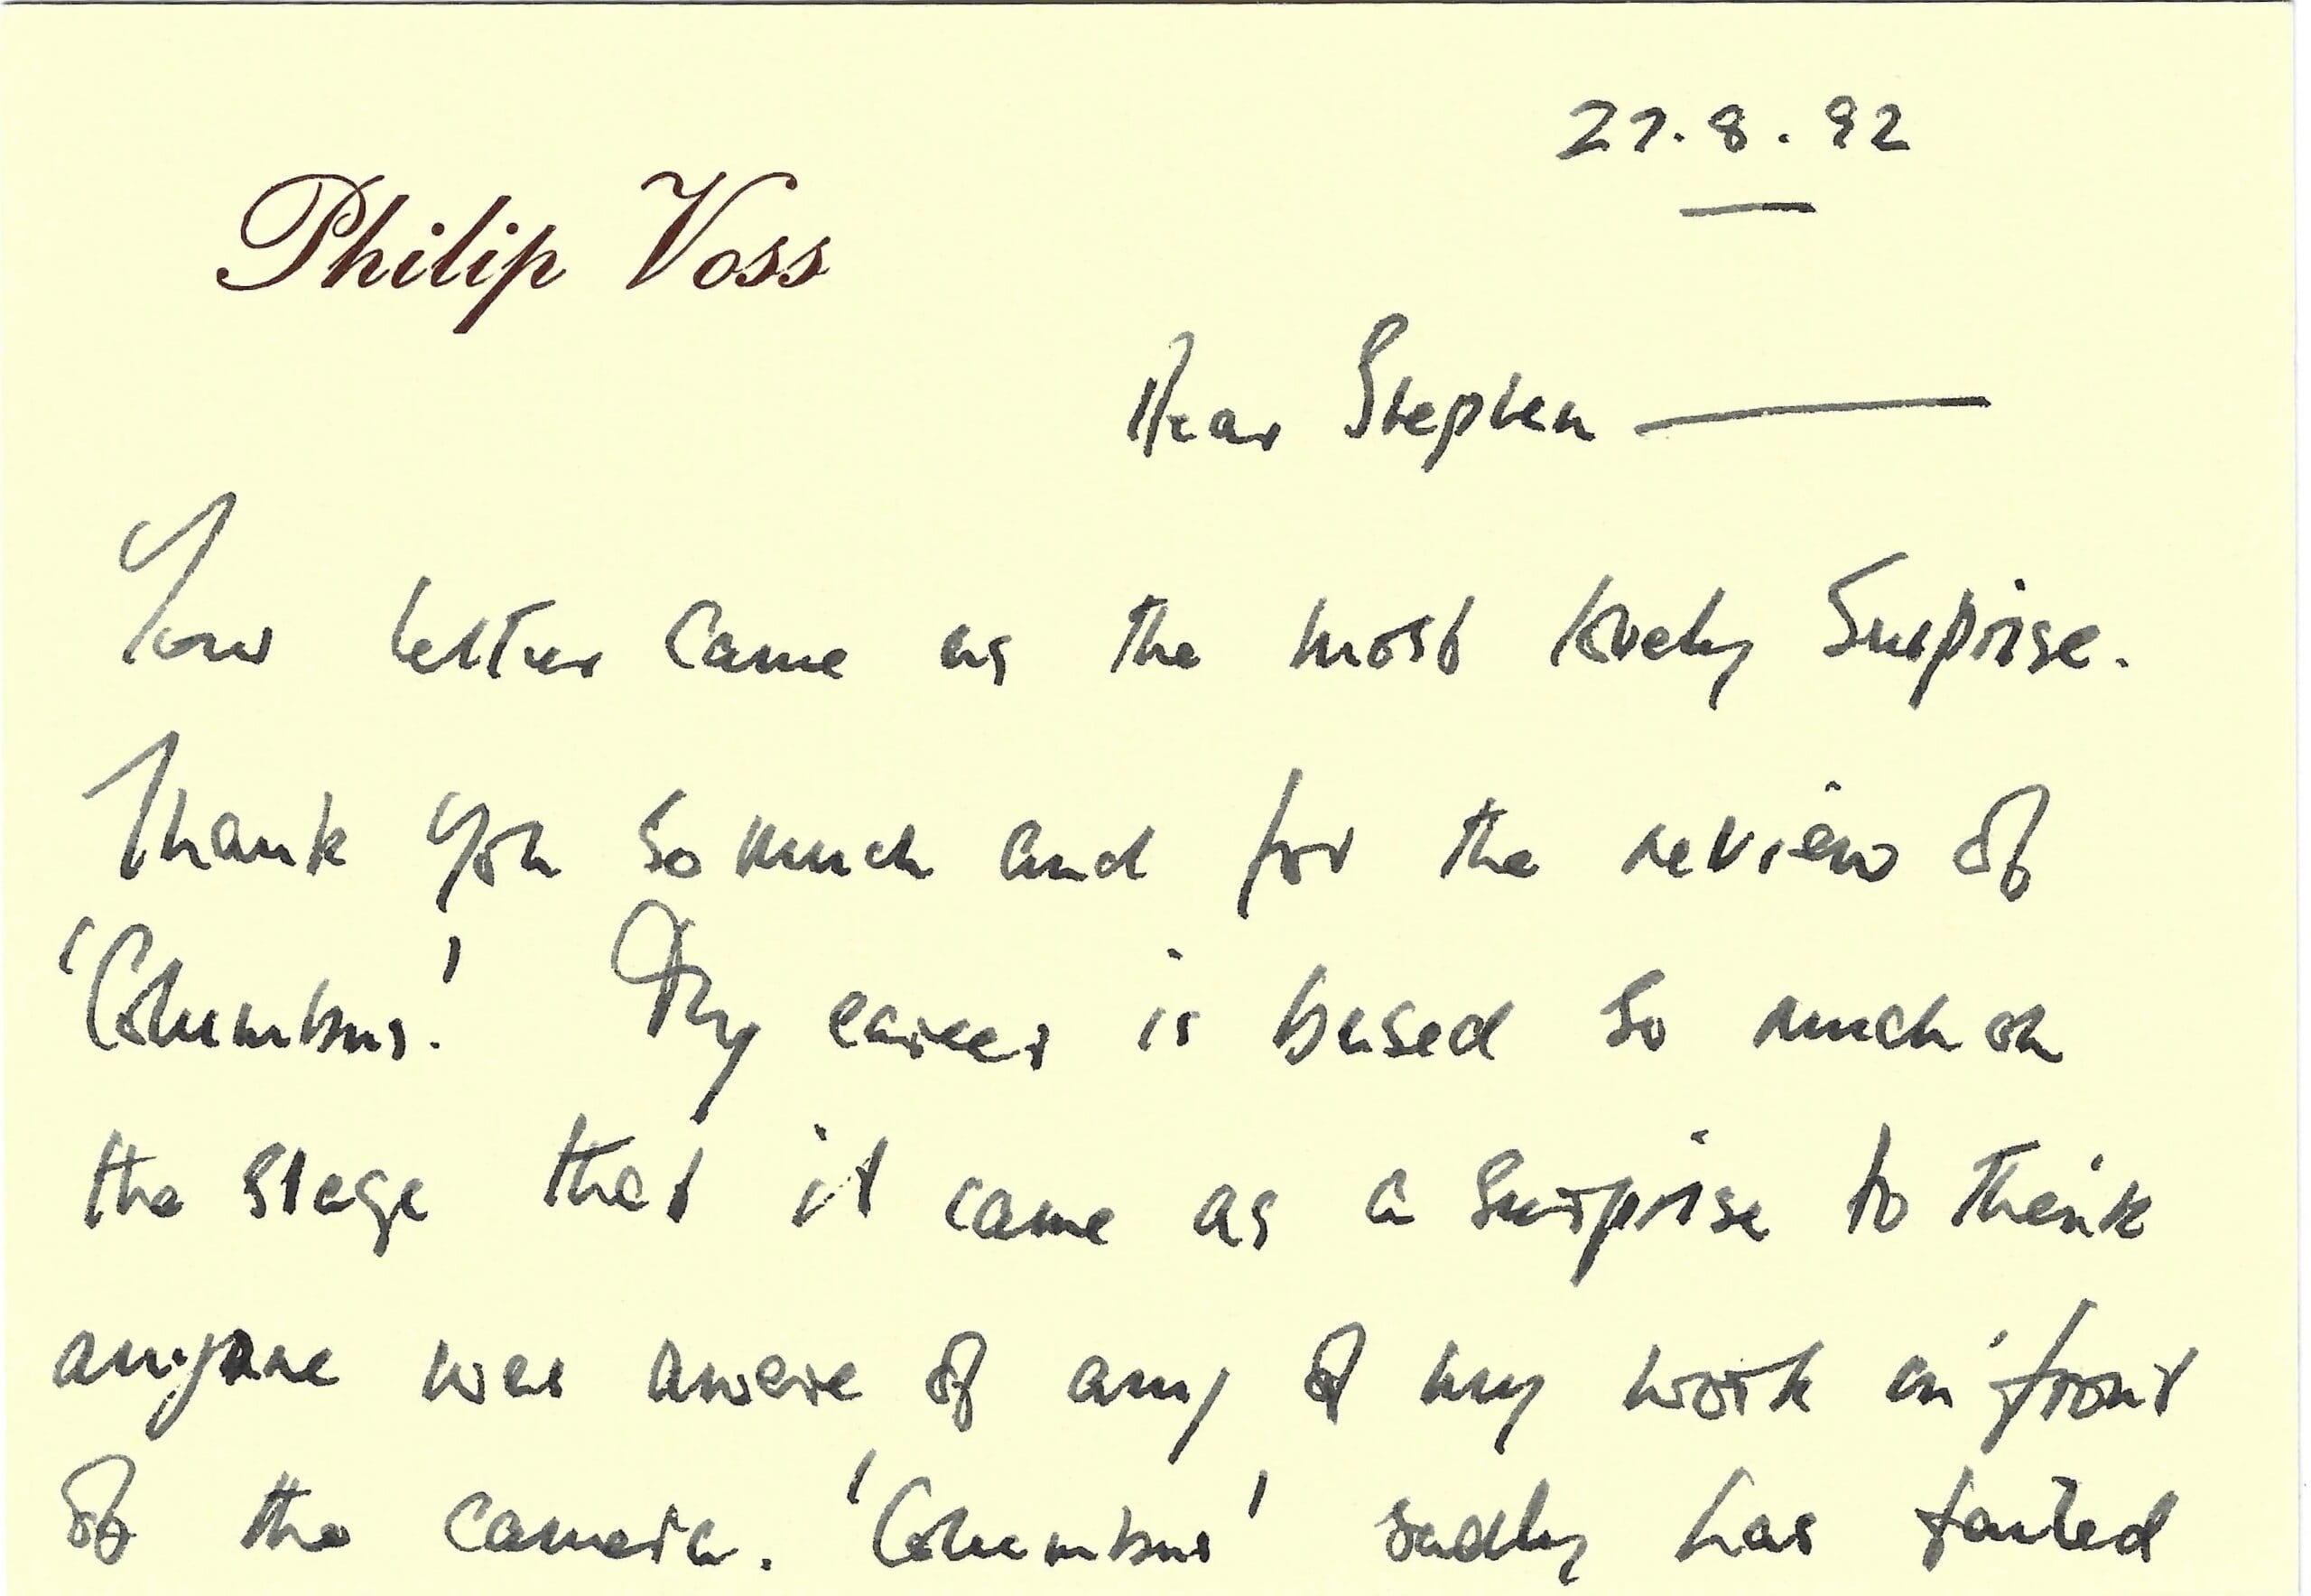 27.8.92
Philip Voss
Dear Stephen —
Your letter came as the most lovely surprise.
Thank you so much and for the review of
'Columbus.' My career is based so much on
the stage that it came as a surprise to think
anyone was aware of any of my work in front
of the camera. 'Columbus' sadly has failed